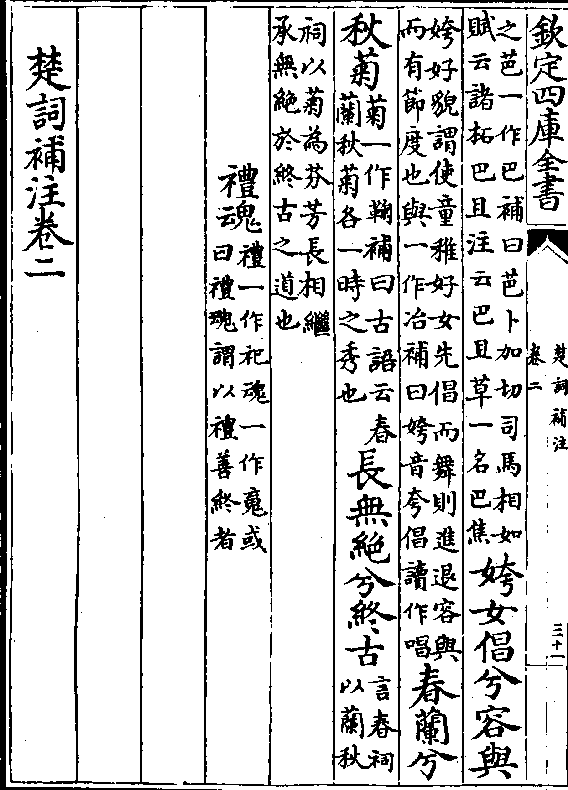 欽定四庫全書
楚詞補注
卷二
三十一
之芭一作巴補曰芭卜加切司馬相如
賦云諸柘巴且注云巴且草一名巴焦
姱女倡兮容與
姱好貌謂使童稚好女先倡而舞則進退容與
而有節度也與一作冶補曰姱音夸倡讀作唱
春蘭兮
秋菊
菊一作鞠補曰古語云春
蘭秋菊各一時之秀也
長無絶兮終古
言春祠
以蘭秋
祠以菊為芬芳長相繼
承無絶於終古之道也
禮魂
禮一作祀魂一作䰟或
曰禮魂謂以禮善終者
楚詞補注卷二